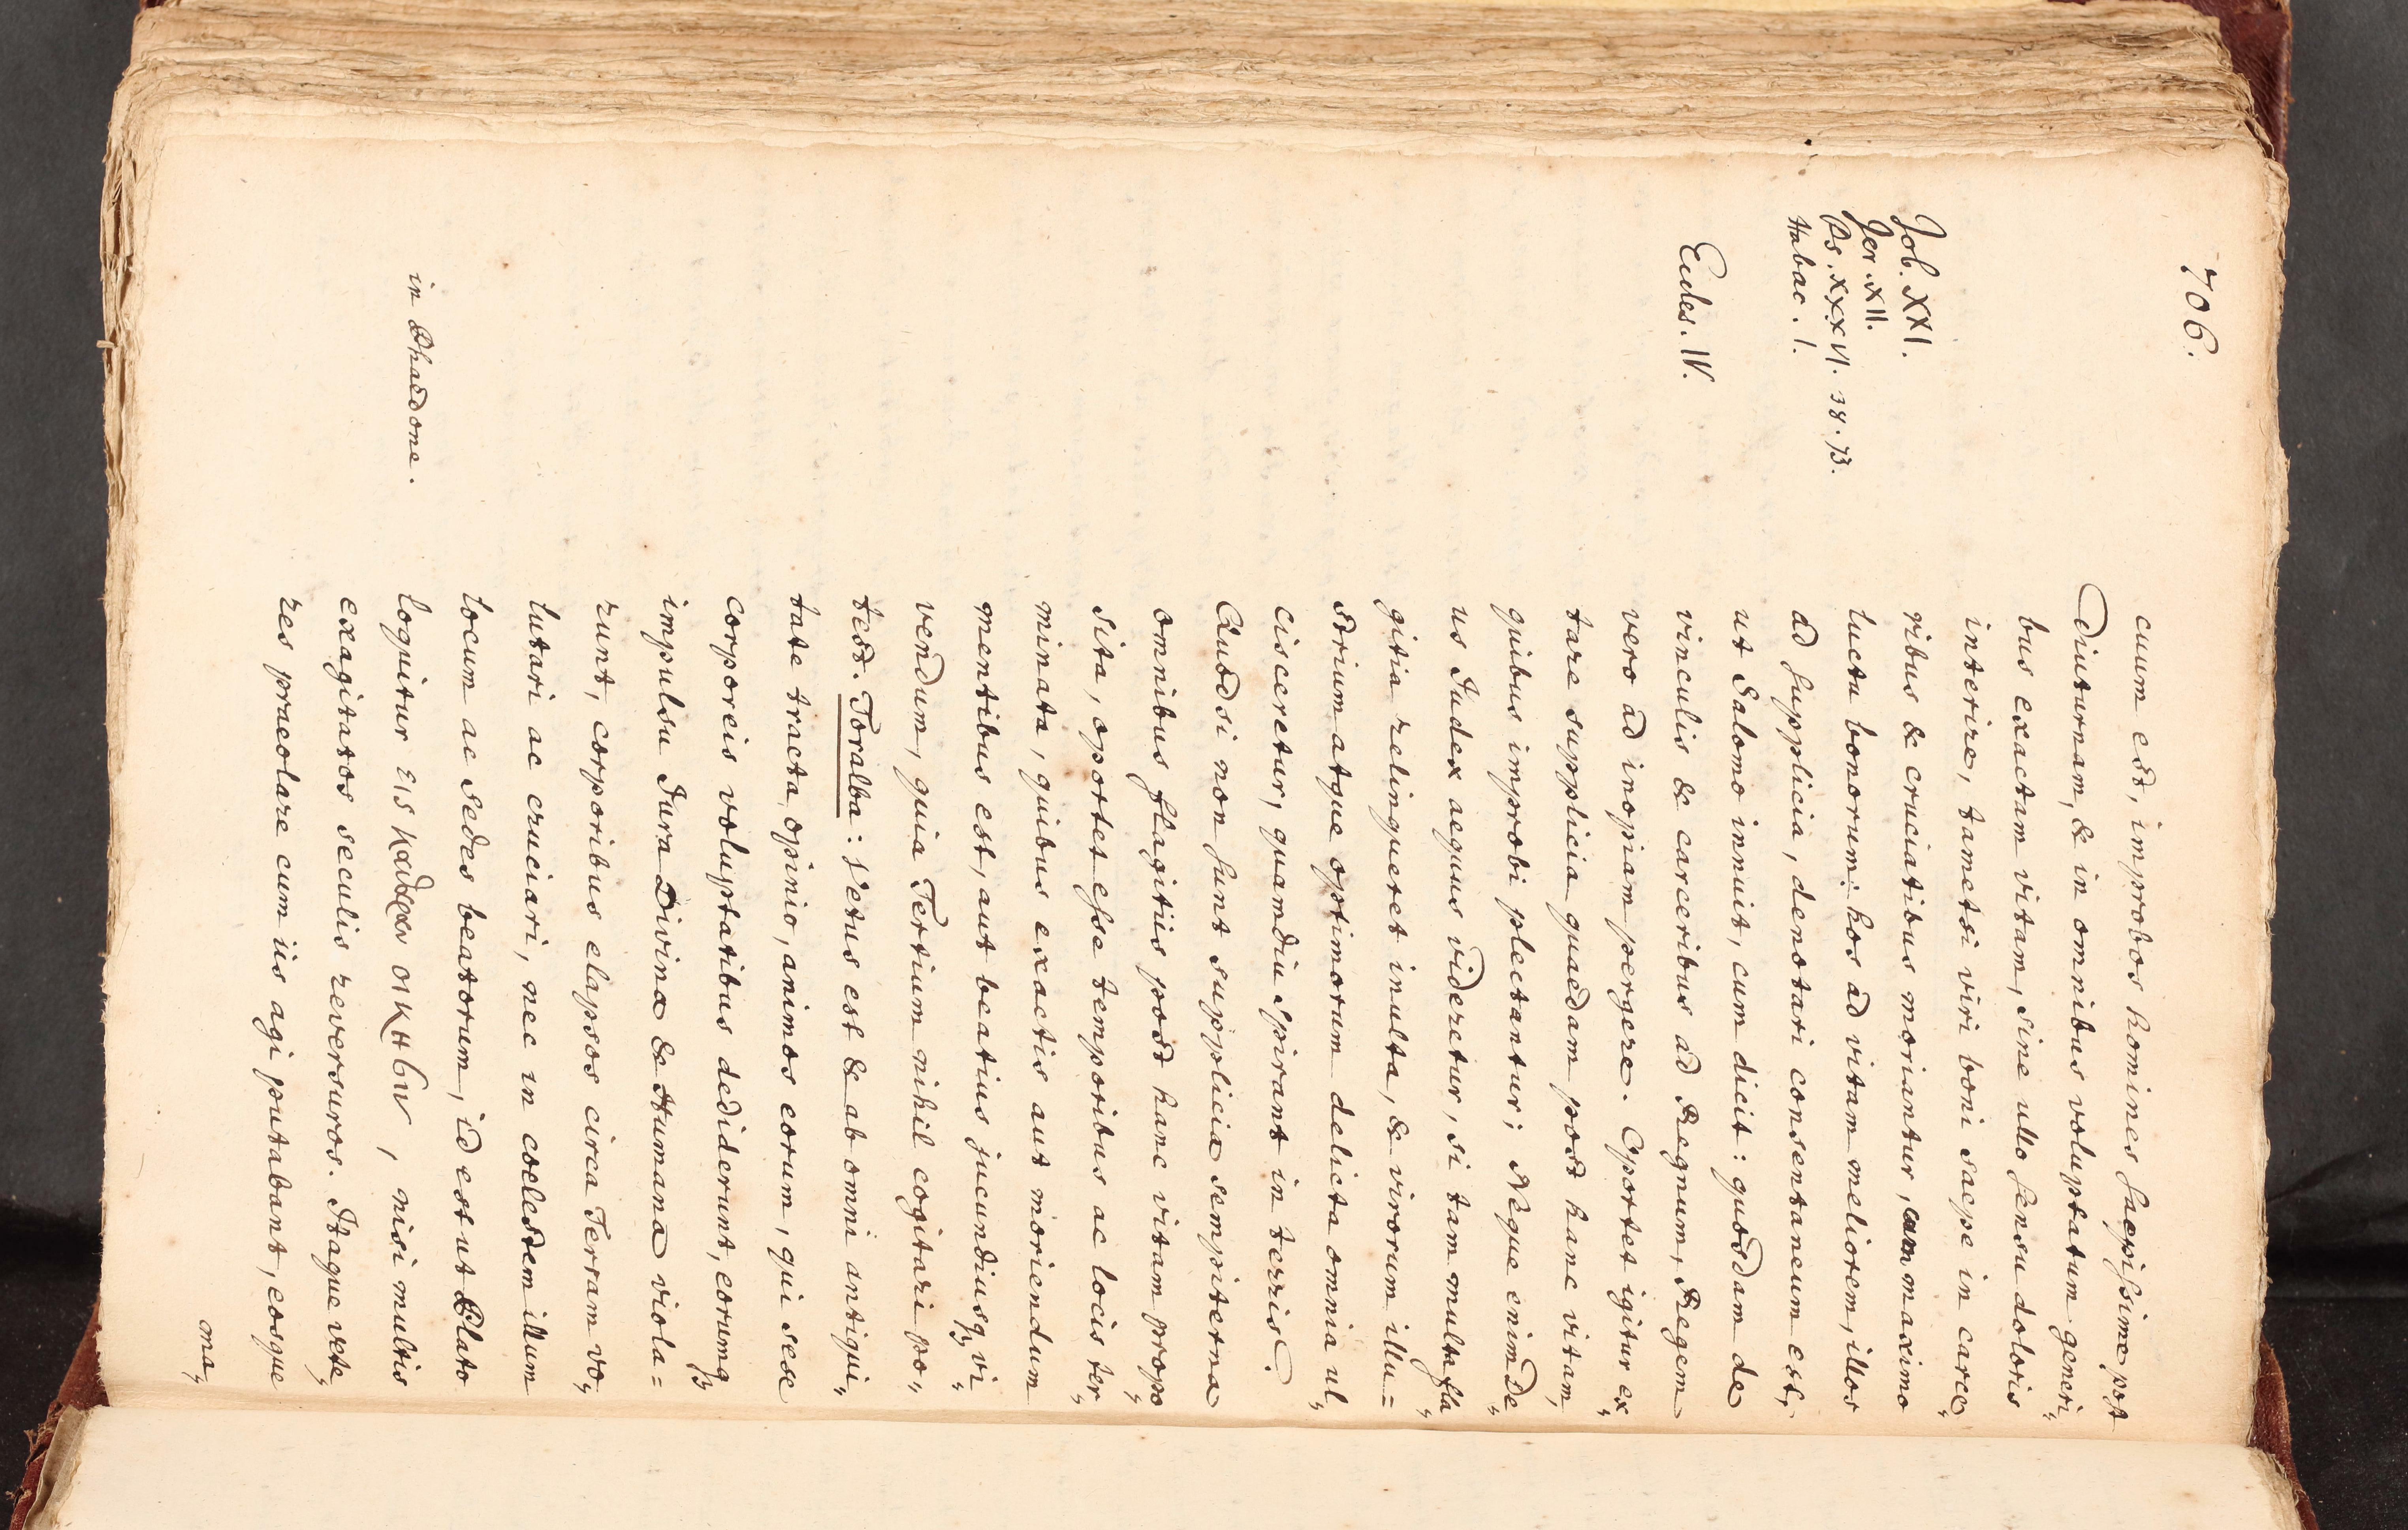 706.
cuum est, improbos homines saepissime post
Job. XXI.
Jer. XII.
Ps. XXXVI. 38. 73.
Habac. 1.
Eccles. IV.
diuturnam, & in omnibus voluptatum generi„
bus exactam vitam, sine ullo sensu doloris
interire, tametsi viri boni saepe in carce„
ribus & cruciatibus moriantur, cum maximo
luctu bonorum: hos ad vitam meliorem, illos
ad supplicia, denotari consentaneum est,
ut Salomo innuit, cum dicit: quosdam de
vinculis & carceribus ad Regnum, Regem
vero ad inopiam pergere. Oportet igitur ex„
tare supplicia quaedam post hanc vitam,
quibus improbi plectantur; Neque enim De„
us Judex aequus videretur, si tam multa fla„
gitia relinqueret inulta, & virorum illu=
strium atque optimorum delicta omnia ul„
cisceretur, quamdiu spirant in terris.
Quodsi non sunt supplicia sempiterna
omnibus flagitiis post hanc vitam propo„
sita, oportet esse temporibus ac locis ter„
minata, quibus exactis aut moriendum
mentibus est, aut beatius jucundiusq vi„
vendum, quia Tertium nihil cogitari po„
test. Toralba: Vetus est & ab omni antiqui„
tate tracta opinio, animos eorum, qui sese
corporeis voluptatibus dediderunt, eorumq
impulsu Jura Divina & Humana viola=
runt, corporibus elapsos circa Terram vo„
lutari ac cruciari, nec in coelestem illum
locum ac sedes beatorum, id est ut Plato
in Phaedone.
loquitur εις καθαραν οικησιν, nisi multis
exagitatos seculis reversuros. Itaque vete„
res praeclare cum iis agi putabant, eosque
ma„